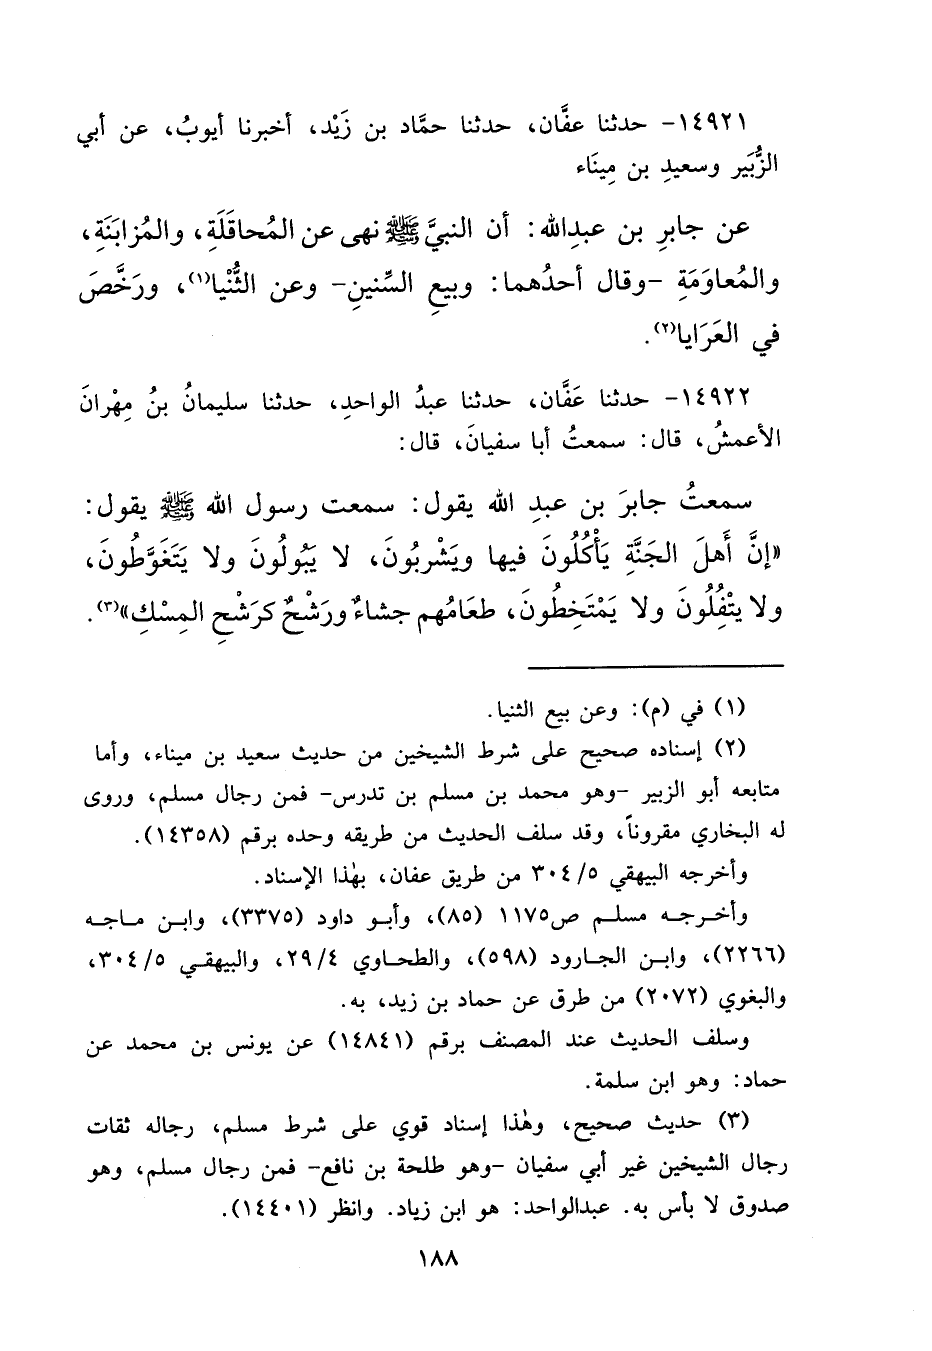 ١٤٩٢١- حدثنا عفَّان، حدثنا حمَّاد بن زَيْد، أخبرنا أيوبُ، عن أبي
الزُّبَير وسعيدِ بن مِينَاء
عن جابرِ بن عبدِالله: أن النبيَّ ﷺ نهى عن المُحاقَلَةِ، والمُزابَنَةِ،
والمُعاوَمَةِ -وقال أحدُهما: وبيعِ السِّنينِ- وعن الثُّنْيا(١)، ورَخَّصَ
في العَرَايا(٢).
١٤٩٢٢- حدثنا عَفَّان، حدثنا عبدُ الواحدِ، حدثنا سليمانُ بنُ مِهْرانَ
الأعمشُ، قال: سمعتُ أبا سفيانَ، قال:
سمعتُ جابرَ بن عبدِ الله يقول: سمعت رسول الله ﷺ يقول:
«إنَّ أَهلَ الجَنَّةِ يَأْكُلُونَ فيها ويَشْربُونَ، لا يَبُولُونَ ولا يَتَغَوَّطُونَ،
ولا يتْفِلُونَ ولا يَمْتَخِطُونَ، طعَامُهم جشاءٌ ورَشْحٌ كرَشْحِ المِسْكِ»(٣).
(١) في (م): وعن بيع الثنيا.
(٢) إسناده صحيح على شرط الشيخين من حديث سعيد بن ميناء، وأما
متابعه أبو الزبير -وهو محمد بن مسلم بن تدرس- فمن رجال مسلم، وروى
له البخاري مقروناً، وقد سلف الحديث من طريقه وحده برقم (١٤٣٥٨).
وأخرجه البيهقي ٣٠٤/٥ من طريق عفان، بهٰذا الإسناد.
وأخرجه مسلم ص١١٧٥ (٨٥)، وأبو داود (٣٣٧٥)، وابن ماجه
(٢٢٦٦)، وابن الجارود (٥٩٨)، والطحاوي ٢٩/٤، والبيهقي ٣٠٤/٥،
والبغوي (٢٠٧٢) من طرق عن حماد بن زيد، به.
وسلف الحديث عند المصنف برقم (١٤٨٤١) عن يونس بن محمد عن
حماد: وهو ابن سلمة.
(٣) حديث صحيح، وهٰذا إسناد قوي على شرط مسلم، رجاله ثقات
رجال الشيخين غير أبي سفيان -وهو طلحة بن نافع- فمن رجال مسلم، وهو
صدوق لا بأس به. عبدالواحد: هو ابن زياد. وانظر (١٤٤٠١).
١٨٨